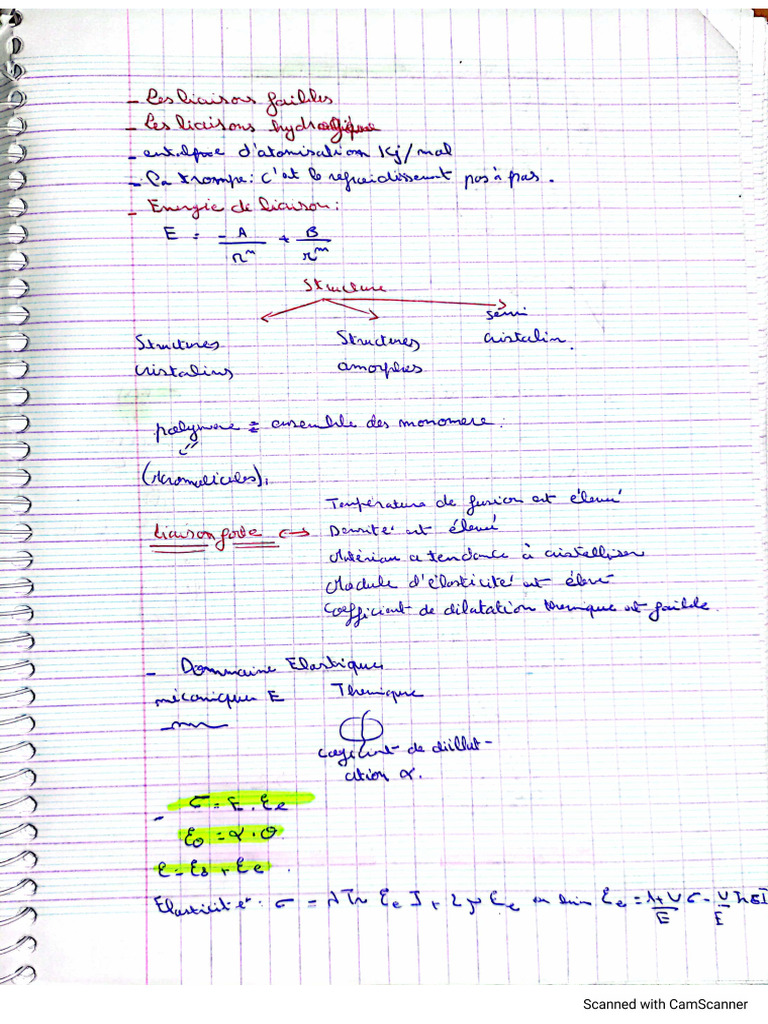 - Les liaisons faibles
- Les liaisons hydrogique
- entalpue d'atomisation Kj/mol
- La trompe: c'est le refroidissement pas à pas.
- Energie de liaison:
E = -A/r^m + B/r^m
Structure
Structures cristalins
Structures amorphes
sémi cristalin.
polymere = ensemble des monomere.
(Macromolicules).
liaison forte ↔ Température de fusion est élevé
Densité est élevé
Matériau a tendance à cristelliser
Module d'élasticité est élevé
Coefficient de dilatation thermique est faible.
- Dommaine Elastiques
mécaniques E Thermique
coefficient de dillat-
ation α.
- σ = E. εe
εθ = α. θ
ε = εθ + εe.
Elasticité: σ = λ Tr εe I + 2μ εe ou bien εe = 1+ν/E σ - ν/E Tr σ I
Scanned with CamScanner